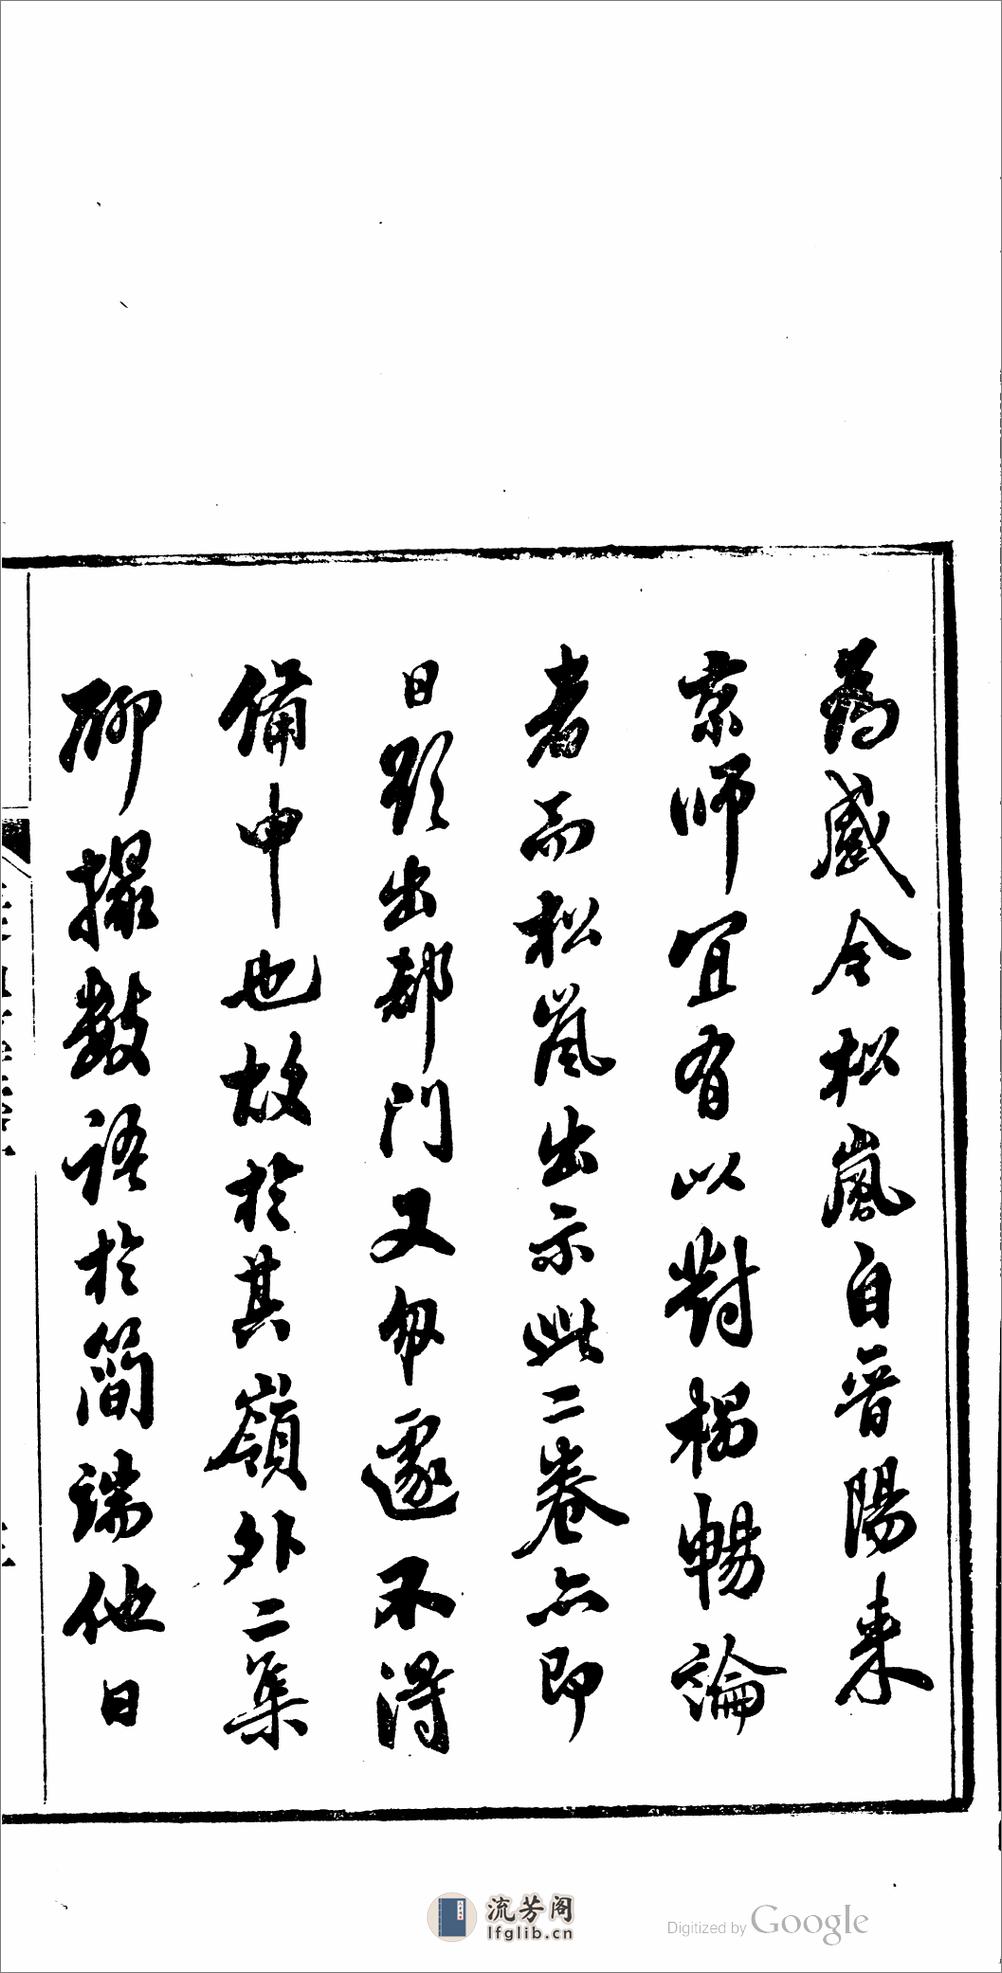 為感今松嵐自晉陽来
京師宜有以對榻暢論
者而松嵐出示此二卷亦即
日欲出都門又匆遽不得
備申也故於其嶺外二集
聊撮數語於簡端他日
流芳阁
lfglib.cn
Digitized by Google